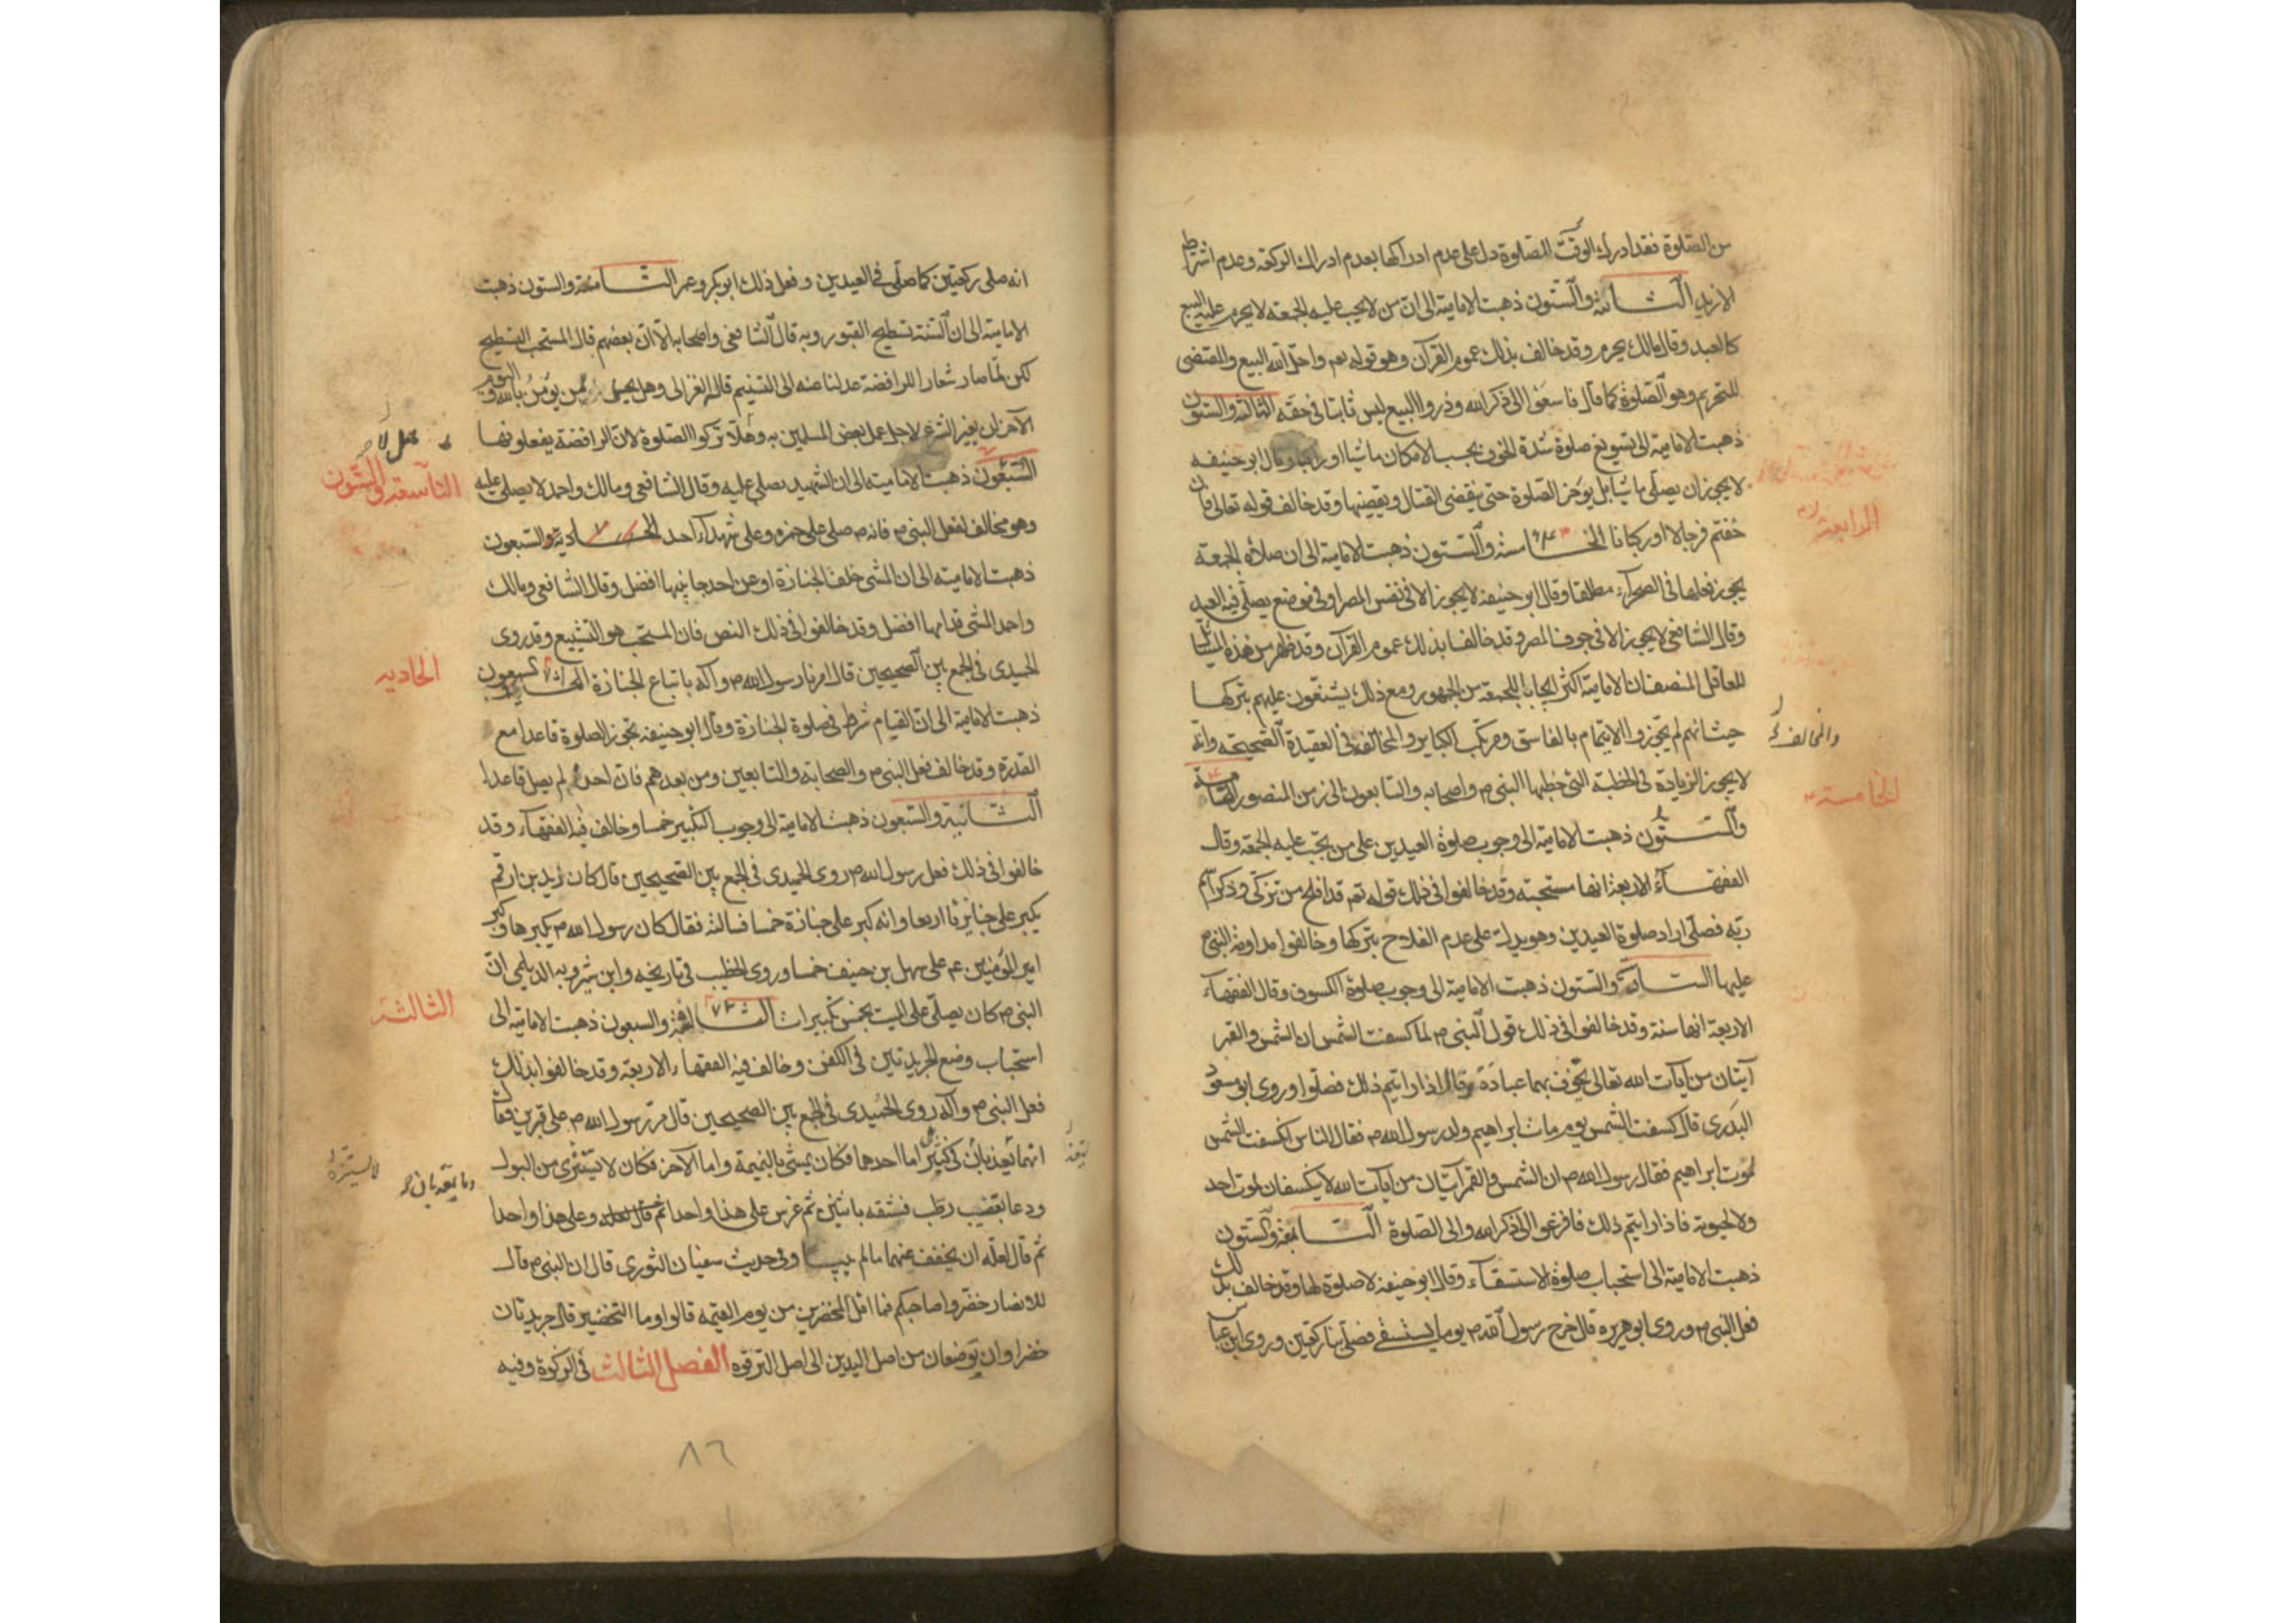 من الصلوة فقد ادرك الوقت الصلوة دل على عدم ادراكها بعدم ادراك الركعة وعدم اشتراط
الازيد الثانية والستون ذهبت الامامية الى ان من لا يجب عليه الجمعة لا يحرم عليه البيع
كالعبد وقال مالك يحرم وقد خالف بذلك عموم القرآن وهو قوله تعم واحل الله البيع والمقتضى
للتحريم وهو الصلوة كما قال فاسعوا الى ذكر الله وذروا البيع ليس ثابتا في حقه الثالثة والستون
ذهبت الامامية الى تسويغ صلوة شدة الخوف بحسب الامكان ماشيا او راكبا وقال ابو حنيفه
لا يجوز ان يصلى ماشيا بل يؤخر الصلوة حتى ينقضى القتال ويقضيها وقد خالف قوله تعالى فان
خفتم فرجالا او ركبانا الخامسة والستون ذهبت الامامية الى ان صلاة الجمعة
يجوز فعلها في الصحرآء مطلقا وقال ابو حنيفه لا يجوز الا في نفس المصر او في موضع يصلى فيه العيد
وقال الشافعي لا يجوز الا في جوف المصر وقد خالفا بذلك عموم القرآن وقد ظهر من هذه المسائل
للعاقل المنصف ان الامامية اكثر ايجابا للجمعة من الجمهور ومع ذلك يشنعون عليهم بتركها
حيث انهم لم يجوزوا الايتمام بالفاسق ومرتكب الكباير والمخالف في العقيدة الصحيحة وانه
لا يجوز الزيادة في الخطبة التي خطبها النبى م واصحابه والتابعون الى زمن المنصور
والستون ذهبت الامامية الى وجوب صلوة العيدين على من يجب عليه الجمعة وقال
الفقهآء الاربعة انها مستحبته وقد خالفوا في ذلك قوله تعم قد افلح من تزكى وذكر اسم
ربه فصلى اراد صلوة العيدين وهو يدل على عدم الفلاح بتركها وخالفوا مداومة النبى م
عليها السادسة والستون ذهبت الامامية الى وجوب صلوة الكسوف وقال الفقهآء
الاربعة انها سنة وقد خالفوا في ذلك قول النبى م لما كسفت الشمس ان الشمس والقمر
آيتان من آيات الله تعالى يخوف بهما عباده وقال اذا رايتم ذلك فصلوا وروى ابو مسعود
البدرى قال كسفت الشمس يوم مات ابراهيم ولد رسول الله م فقال الناس انكسفت الشمس
لموت ابراهيم فقال رسول الله م ان الشمس والقمر آيتان من آيات الله لا يكسفان لموت احد
ولا لحيوته فاذا رايتم ذلك فافزعوا الى ذكر الله والى الصلوة السابعة والستون
ذهبت الامامية الى استحباب صلوة الاستسقآء وقال ابو حنيفه لا صلوة لها وقد خالف بذلك
فعل النبى م وروى ابو هريره قال خرج رسول الله م يوما يستسقى فصلى بنا ركعتين وروى ابن عباس
الرابعة
والمخالف
الخامسة
انه صلى ركعتين كما صلى في العيدين وفعل ذلك ابو بكر وعمر الثامنة والستون ذهبت
الامامية الى ان السنة تسطيح القبور وبه قال الشافعي واصحابه الا ان بعضهم قال المستحب التسطيح
لكن لما صار شعارا للرافضة عدلنا عنه الى التسنيم قال الغزالى وهل يحل لمن يؤمن بالله واليوم
الآخر ان يغير الشرع لاجل عمل بعض المسلمين به وهلا تركوا الصلوة لان الرافضة يفعلونها
السبعون ذهبت الامامية الى ان الشهيد يصلى عليه وقال الشافعي ومالك واحمد لا يصلى عليه
وهو مخالف لفعل النبى م فانه م صلى على حمزه وعلى شهدآء احد الحادية والسبعون
ذهبت الامامية الى ان المشى خلف الجنازة او عن احد جانبيها افضل وقال الشافعي ومالك
واحمد المشى قدامها افضل وقد خالفوا في ذلك النص فان المستحب هو التشييع وقد روى
الحميدى في الجمع بين الصحيحين قال امرنا رسول الله م وآله باتباع الجنازة
ذهبت الامامية الى ان القيام شرط في صلوة الجنازة وقال ابو حنيفه تجوز الصلوة قاعدا مع
القدرة وقد خالف فعل النبى م والصحابة والتابعين ومن بعدهم فان احدا لم يصل قاعدا
الثانية والسبعون ذهبت الامامية الى وجوب التكبير خمسا وخالف فيه الفقهآء وقد
خالفوا في ذلك فعل رسول الله م روى الحميدى في الجمع بين الصحيحين قال كان زيد بن ارقم
يكبر على جنايزنا اربعا وانه كبر على جنازة خمسا فسالته فقال كان رسول الله م يكبرها وكبر
امير المؤمنين عم على سهل بن حنيف خمسا وروى الخطيب في تاريخه وابن شيرويه الديلمى ان
النبى م كان يصلى على الميت بخمس تكبيرات والسبعون ذهبت الامامية الى
استحباب وضع الجريدتين في الكفن وخالف فيه الفقهاء الاربعة وقد خالفوا بذلك
فعل النبى م وآله روى الحميدى في الجمع بين الصحيحين قال مر رسول الله م على قبرين فقال
انهما يعذبان في كبير اما احدهما فكان يمشى بالنميمة واما الآخر فكان لا يستنزى من البول
ودعا بقضيب رطب فشقه باثنين ثم غرس على هذا واحدا ثم قال لعله وعلى هذا واحدا
ثم قال لعله ان يخفف عنهما ما لم ييبسا وفي حديث سفيان الثورى قال ان النبى م قال
للانصار خضروا صاحبكم فما اقل المخضرين من يوم القيمة قالوا وما التخضير قال جريدتان
خضراوان توضعان من اصل اليدين الى اصل الترقوه الفصل الثالث في الزكوة وفيه
التاسعة والستون
الحادية
الثالثة
وما يعذبان
لا يستتر
٨٦